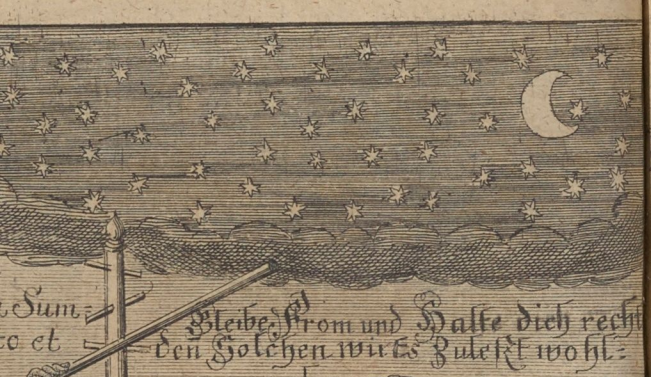 Sum=
to et
Bleibe From und Halte dich recht
den Solchen wirts Zuletzt wohl=